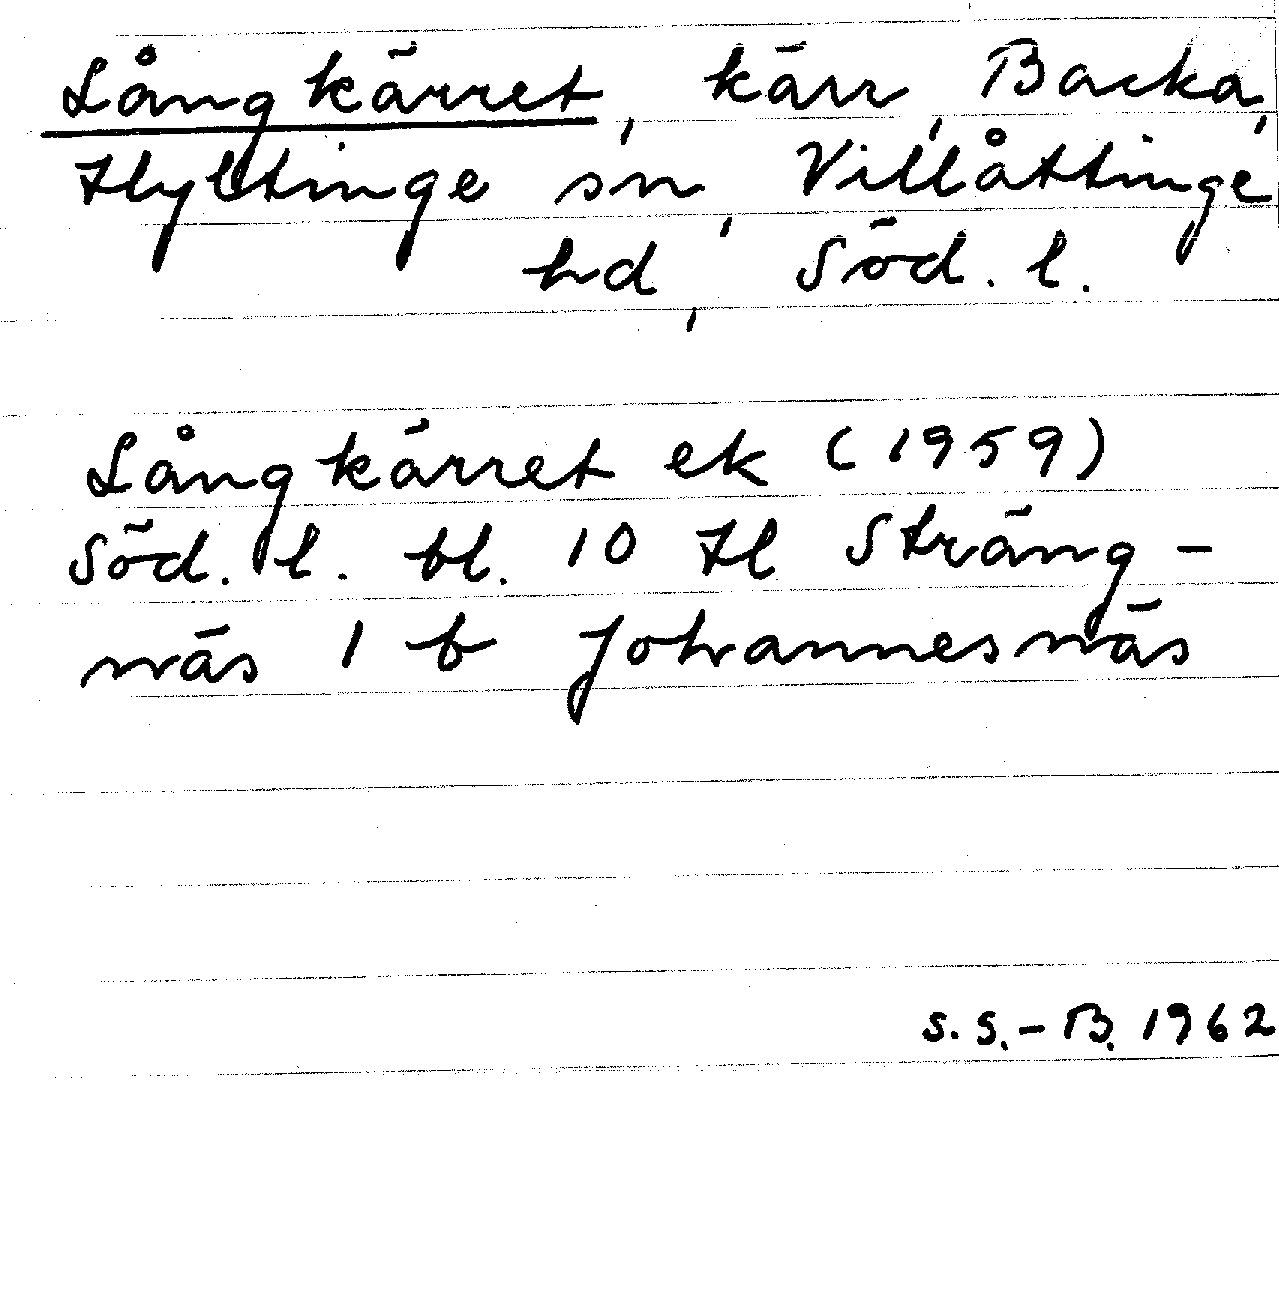 Långkärret, kärr, Backa,
Hyltinge sn, Villåttinge
hd, Söd. l.
Långkärret ek (1959)
Söd. l. bl. 10 H Sträng-
näs 1 b Johannesnäs
S. S.-B. 1962